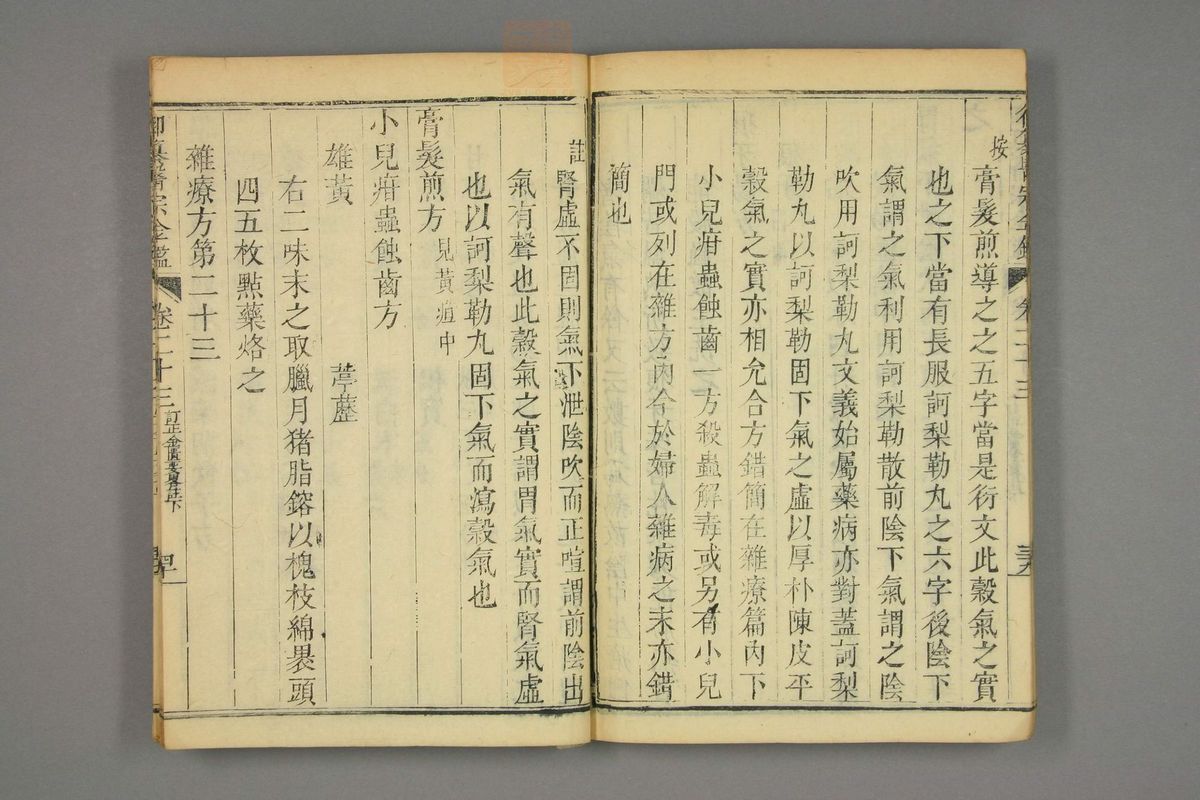 按
膏髮煎導之之五字當是衍文此穀氣之實
也之下當有長服訶梨勒丸之六字後陰下
氣謂之氣利用訶梨勒散前陰下氣謂之陰
吹用訶梨勒丸文義始屬藥病亦對蓋訶梨
勒丸以訶梨勒固下氣之虛以厚朴陳皮平
穀氣之實亦相允合方錯簡在雜療篇內下
小兒疳蟲蝕齒一方殺蟲解毒或另有小兒
門或列在雜方內今於婦人雜病之末亦錯
簡也
註
腎虛不固則氣下泄陰吹而正喧謂前陰出
氣有聲也此穀氣之實謂胃氣實而腎氣虛
也以訶梨勒丸固下氣而瀉穀氣也
膏髮煎方 見黃疸中
小兒疳蟲蝕齒方
雄黃 葶藶
右二味末之取臘月猪脂鎔以槐枝綿裹頭
四五枚點藥烙之
雜療方第二十三
御纂醫宗金鑑 卷二十三 訂正金匱要略註下